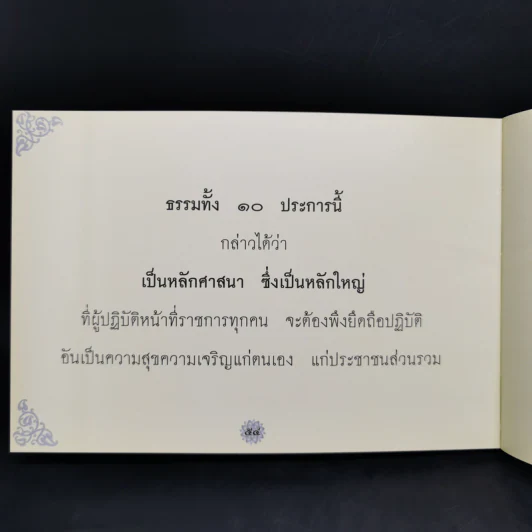 ธรรมทั้ง ๑๐ ประการนี้
กล่าวได้ว่า
เป็นหลักศาสนา ซึ่งเป็นหลักใหญ่
ที่ผู้ปฏิบัติหน้าที่ราชการทุกคน จะต้องพึงยึดถือปฏิบัติ
อันเป็นความสุขความเจริญแก่ตนเอง แก่ประชาชนส่วนรวม